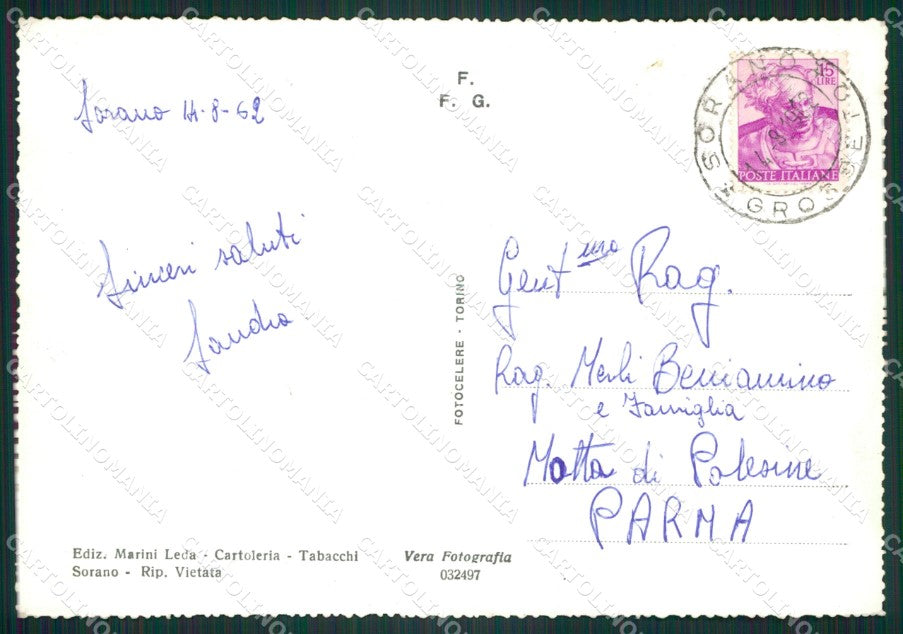 F.
F. G.
Sorano 14-8-62
15
LIRE
POSTE ITALIANE
SORANO
GROSSETO
Sinceri saluti
Sandra
FOTOCELERE - TORINO
Gent.mo Rag.
Rag. Merli Beniamino
e Famiglia
Motta di Polesine
PARMA
Ediz. Marini Leda - Cartoleria - Tabacchi
Sorano - Rip. Vietata
Vera Fotografia
032497
CARTOLINOMANIA